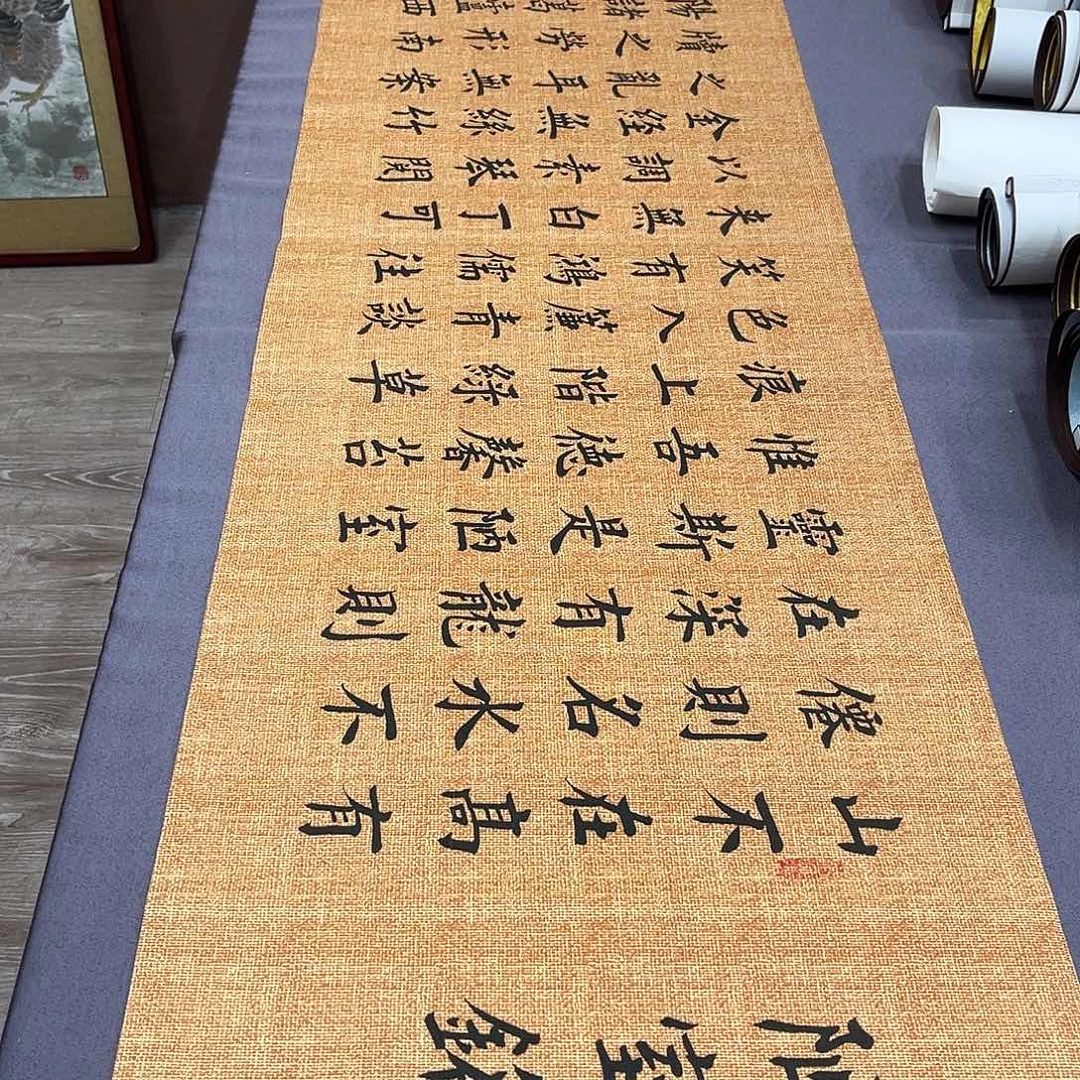 陋室銘
山不在髙有
僊則名水不
在深有龍則
靈斯是陋室
惟吾德馨苔
痕上階綠草
色入簾青談
笑有鴻儒往
来無白丁可
以調素琴閱
金経無絲竹
之亂耳無案
牘之勞形南
陽諸葛廬西